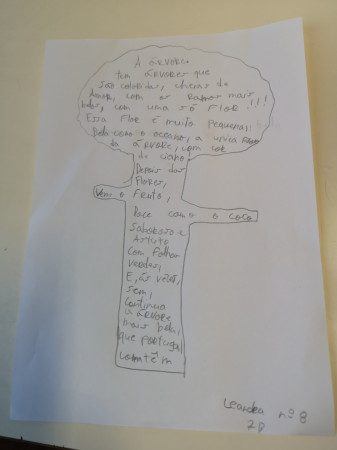 A ÁRVORE
Há ÁRVORES que
são coloridas, cheias de
Amor, com os Ramos mais
belos, com uma só FLOR!!!
Essa Flor é muito pequena,
Bela como o oceano, a única FLOR
da ÁRVORE, com cor
de ciano
Depois das
Flores,
Vem o FRUTO,
Doce como o coco
Saboroso e
Astuto
Com Folhas
verdes,
E, às vezes,
sem,
Continua
a ÁRVORE
mais bela,
que PORTUGAL
contêm
nº 8